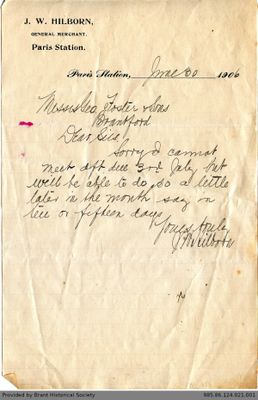 J. W. HILBORN,
GENERAL MERCHANT.
Paris Station.
Paris Station, June 30 1906
Messrs Geo Foster & Sons
Brantford
Dear Sirs,
Sorry I cannot
meet dft due 3rd July but
will be able to do so a little
later in the month say in
ten or fifteen days
Yours truly
J W Hilborn
Provided by Brant Historical Society
985.86.124.021.001